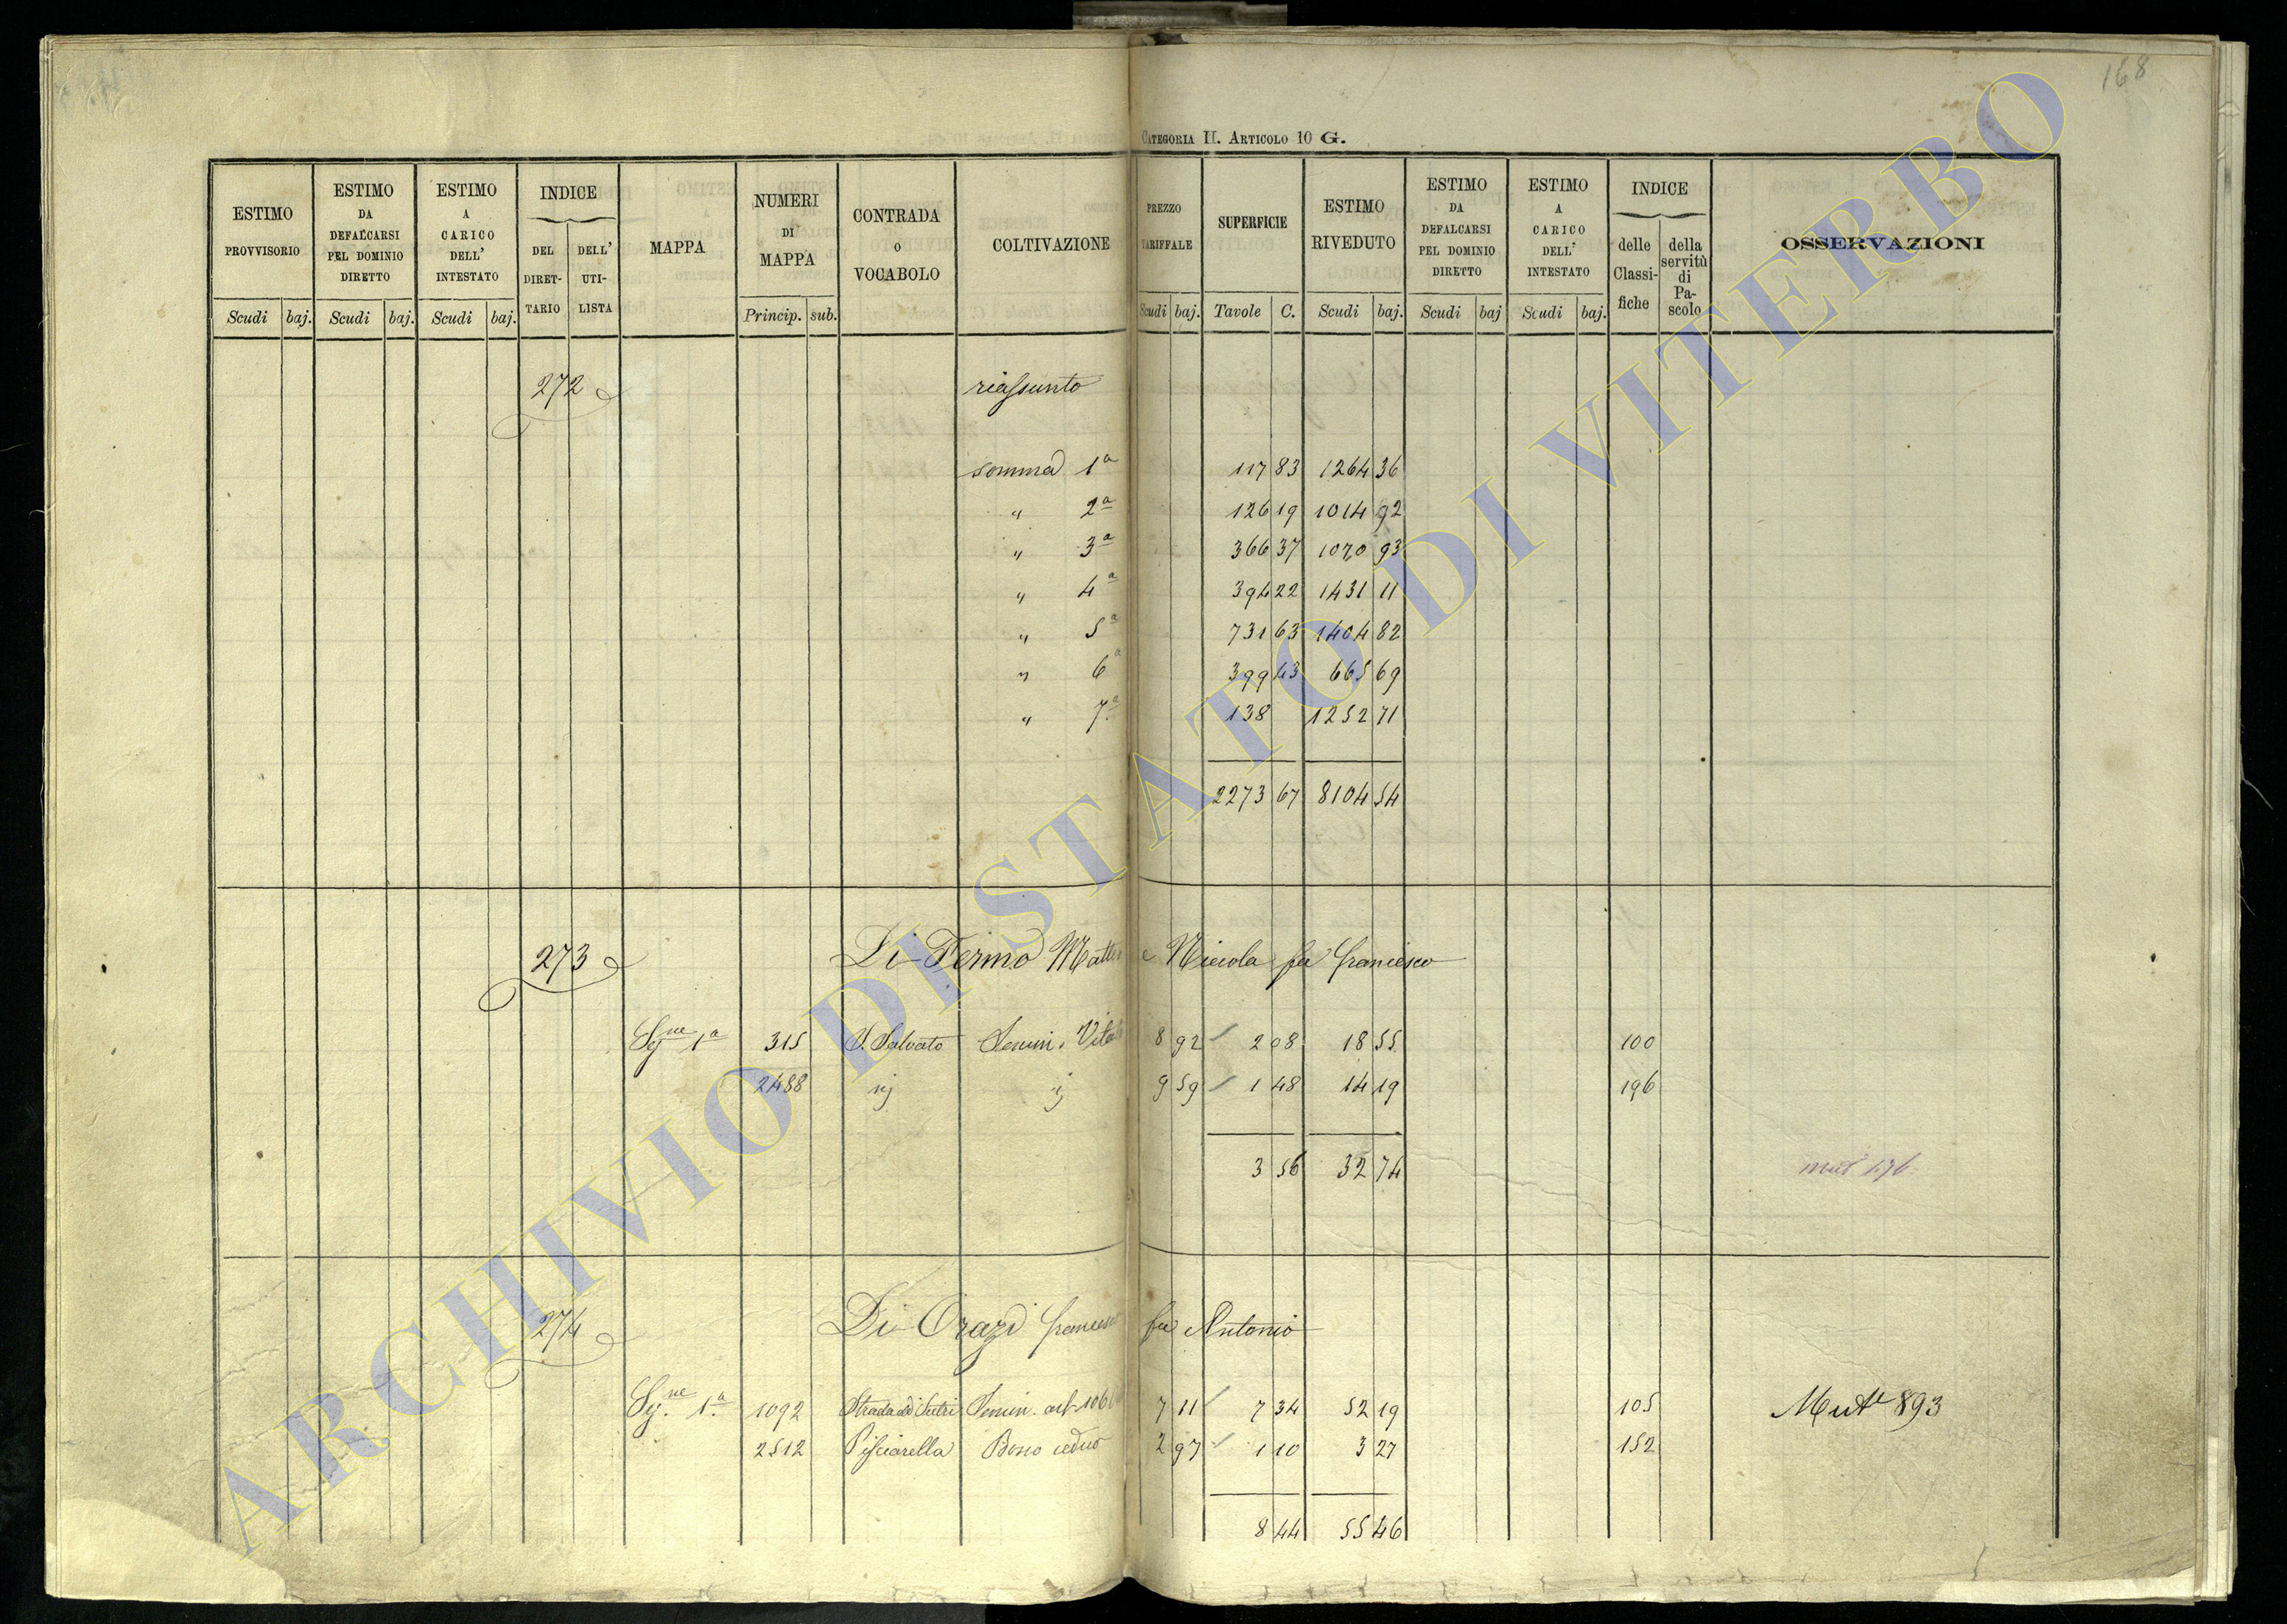 168
CATEGORIA II. ARTICOLO 10 G.
ESTIMO PROVVISORIO Scudi baj.
ESTIMO DA DEFALCARSI PEL DOMINIO DIRETTO Scudi baj.
ESTIMO A CARICO DELL' INTESTATO Scudi baj.
INDICE DEL DIRET-TARIO DELL' UTI-LISTA
MAPPA
NUMERI DI MAPPA Princip. sub.
CONTRADA O VOCABOLO
COLTIVAZIONE
PREZZO TARIFFALE Scudi baj.
SUPERFICIE Tavole C.
ESTIMO RIVEDUTO Scudi baj.
ESTIMO DA DEFALCARSI PEL DOMINIO DIRETTO Scudi baj
ESTIMO A CARICO DELL' INTESTATO Scudi baj.
INDICE delle Classi-fiche della servitù di Pa-scolo
OSSERVAZIONI
272 riassunto
somma 1a 117 83 1264 36
" 2a 126 19 1014 92
" 3a 366 37 1070 93
" 4a 394 22 1431 11
" 5a 731 63 1404 82
" 6a 399 43 665 69
" 7a 138 1252 71
2273 67 8104 54
273 Di Fermo Matteo e Niccola fu Francesco
Sgne 1a 315 S. Salvato Semin. Vitato 8 92 2 08 18 55 100
2488 ij ij 9 59 1 48 14 19 196
3 56 32 74
274 Di Orazi Francesco fu Antonio
Sgne 1a 1092 Strada di Sutri Semin. 7 11 7 34 52 19 105 Mutte 893
2512 Pisciarella Bosco ceduo 2 97 1 10 3 27 152
8 44 55 46
ARCHIVIO DI STATO DI VITERBO